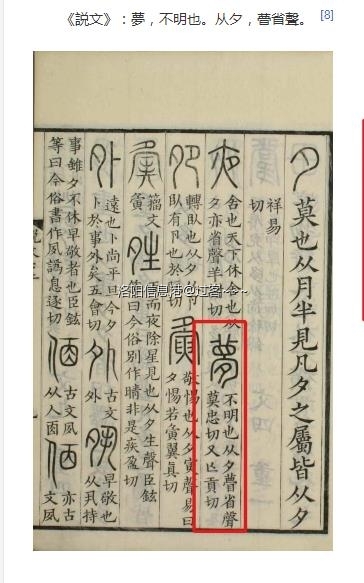 《説文》：夢，不明也。从夕，瞢省聲。 [8]
夕 莫也从月半見凡夕之屬皆从夕
祥易
切
夜 舍也天下休舍也从
夕亦省聲羊
切
夢 不明也从夕瞢省聲
莫忠切又亡貢切
夗 轉臥也从夕从
臥有卪也於
切
夤 敬惕也从夕寅聲易曰
夕惕若夤翼眞切
籒文
夤
夝 而夜除星見也从夕生聲臣鉉
等曰今俗別作晴非是疾盈切
外 遠也卜尚平旦今夕
卜於事外矣五會切
古文
外
早敬也
从丮持
事雖夕不休早敬者也臣鉉
等曰今俗書作夙譌息逐切
古文夙
从人㐁
亦古
文夙
洛阳信息港@过客~~